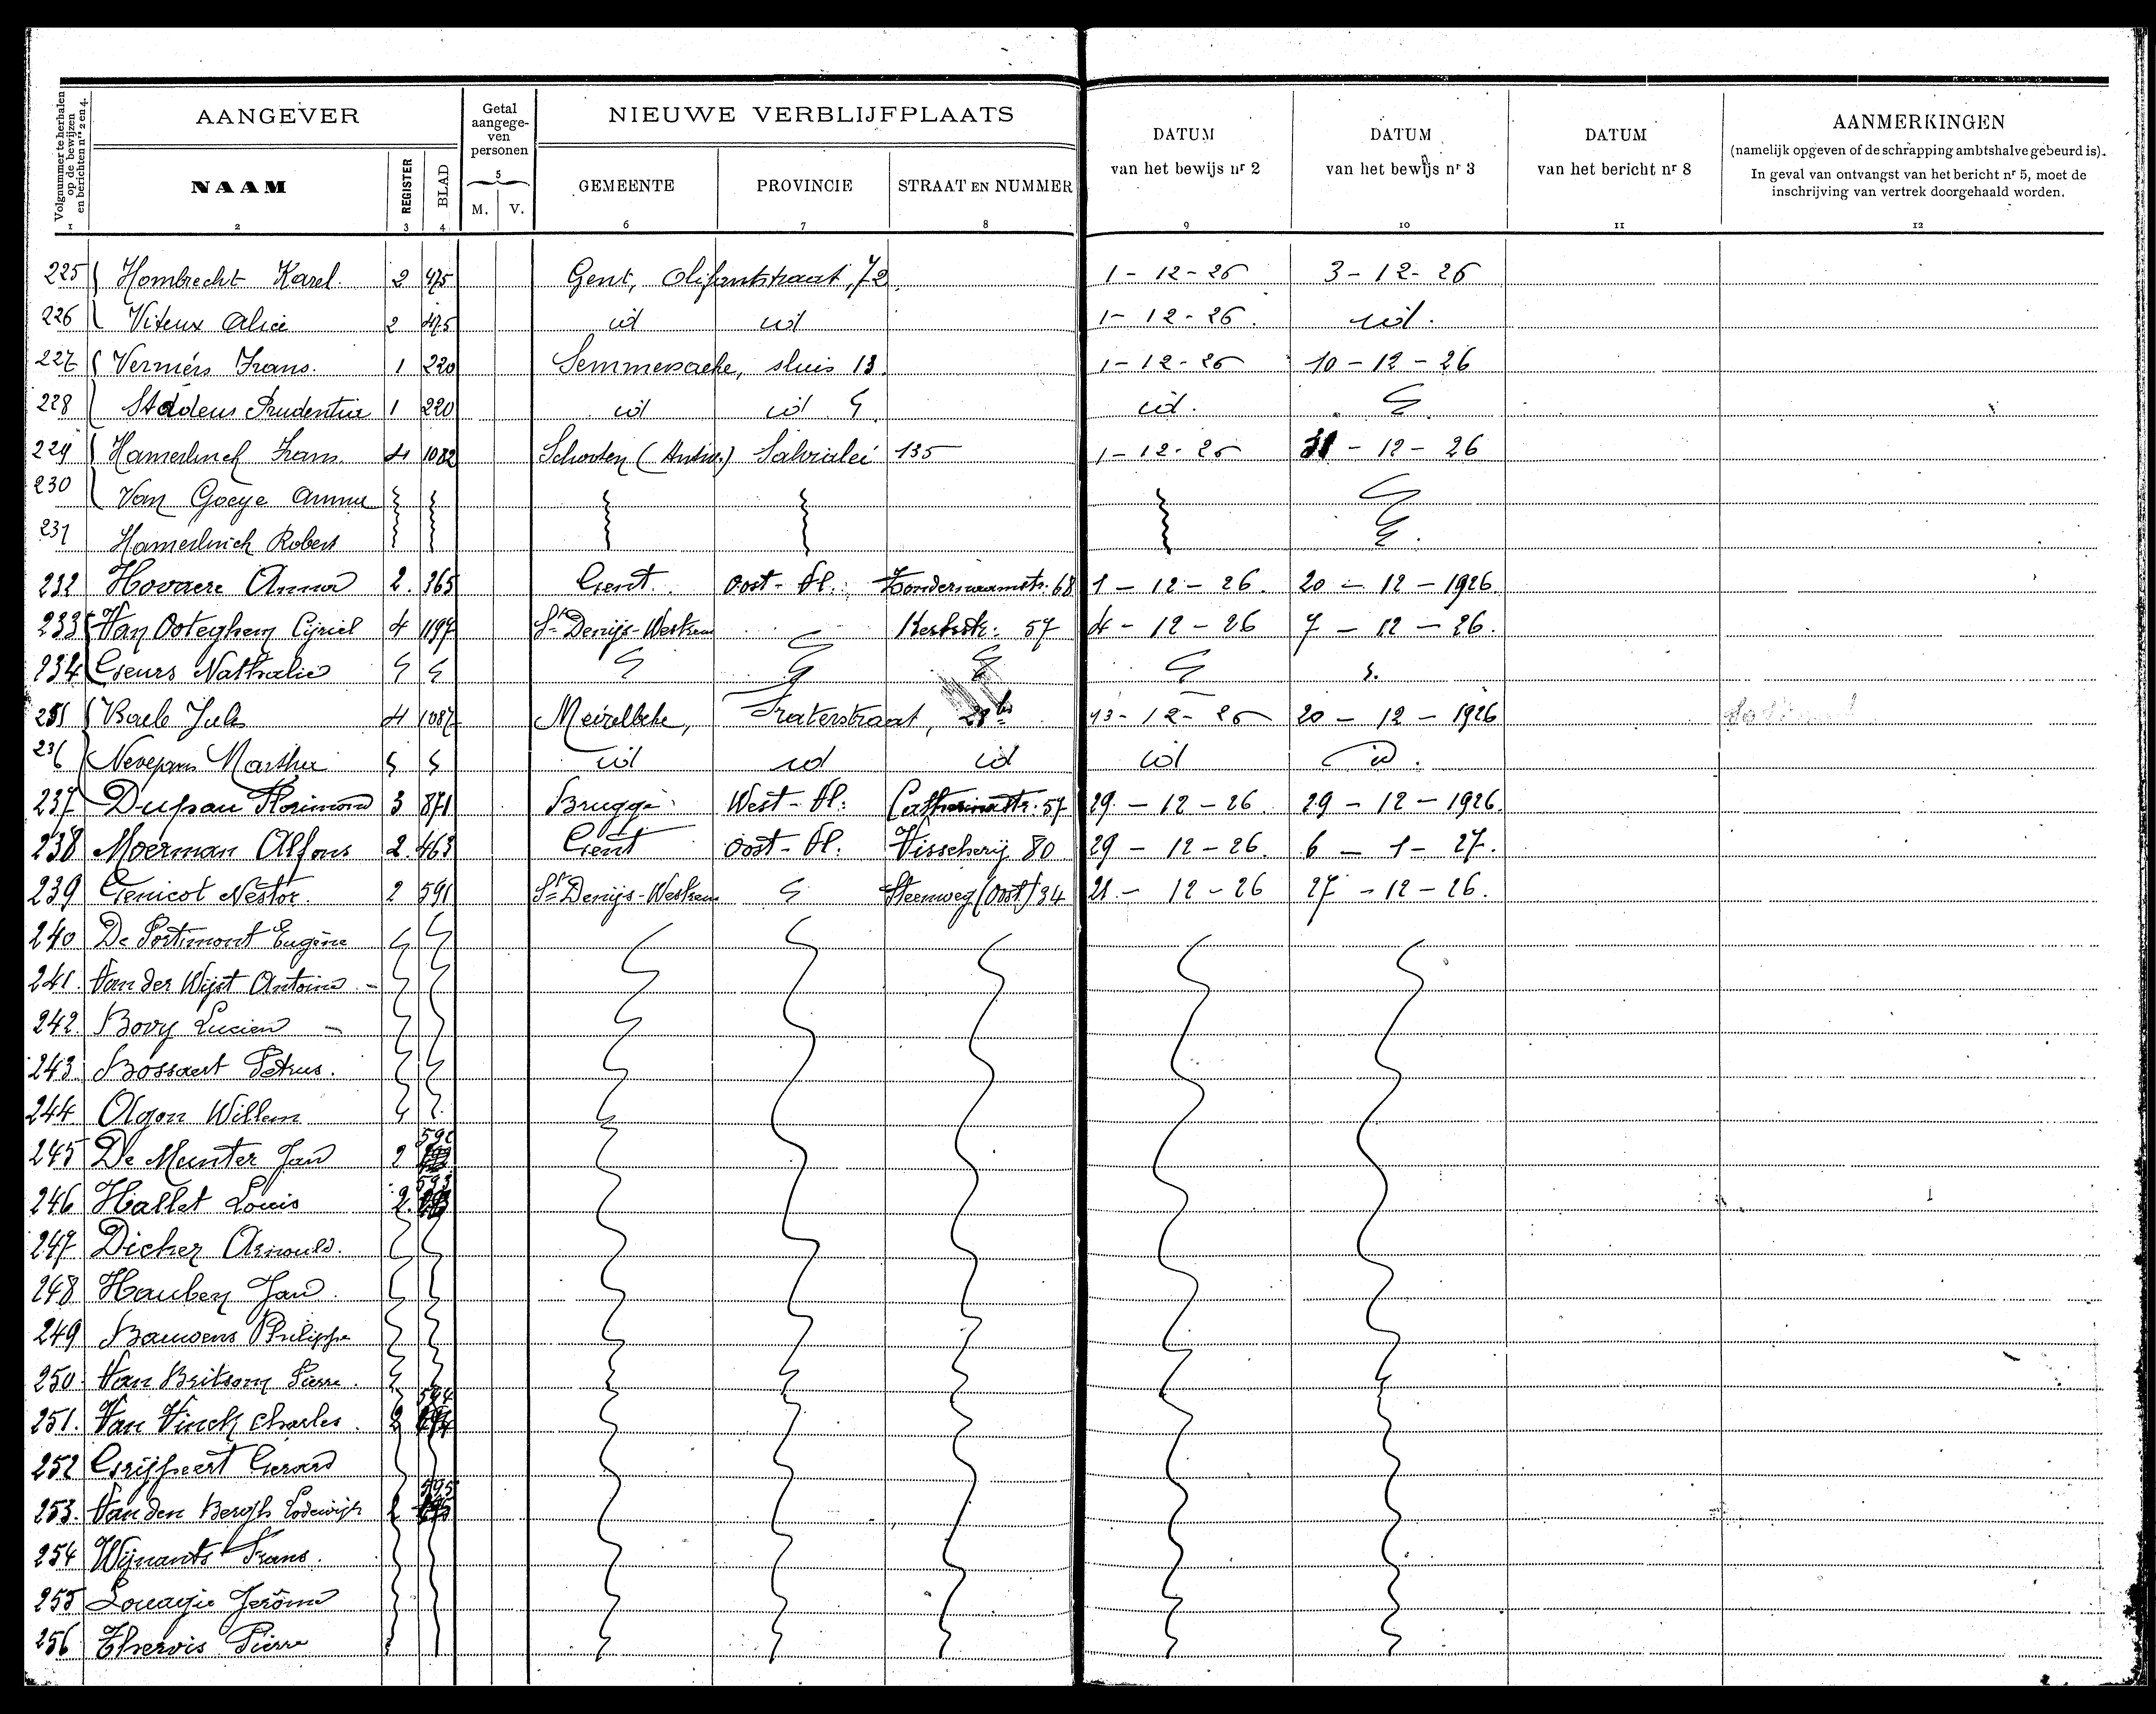 Volgnummer te herhalen op de bewijzen en berichten nrs 2 en 4.
AANGEVER
Getal aangegeven personen
NIEUWE VERBLIJFPLAATS
DATUM van het bewijs nr 2
DATUM van het bewijs nr 3
DATUM van het bericht nr 8
AANMERKINGEN
(namelijk opgeven of de schrapping ambtshalve gebeurd is).
In geval van ontvangst van het bericht nr 5, moet de
inschrijving van vertrek doorgehaald worden.
NAAM REGISTER BLAD M. V. GEMEENTE PROVINCIE STRAAT EN NUMMER
1 2 3 4 5 6 7 8 9 10 11 12
225 Hombrecht Karel. 2 475 Gent, Olifantstraat, 72. 1-12-26 3-12-26
226 Viteux Alice 2 475 id id 1-12-26. id.
227 Vermeirs Frans. 1 220 Semmersacke, sluis 13. 1-12-26 10-12-26
228 Prudentia 1 220 id id id.
229 Hamerlinck Frans. 4 1082 Schooten (Antw.) 135 1-12-26 31-12-26
230 Van Goeye Anna
231 Hamerlinck Robert
232 Hovaere Anna 2. 365 Gent. Oost-Vl. 68 1-12-26. 20-12-1926
233 Van Ooteghem Cyriel 4 1197 St Denijs-Westrem Kerkstr. 57 4-12-26 7-12-26.
234 Geurs Nathalie
235 Baele Jules 4 1087 Meirelbeke, Fraterstraat, 28bis 13-12-26 20-12-1926
236 Martha id id id id id.
237 Florimond 3 871 Brugge. West-Vl: Catharinastr. 57 29-12-26 29-12-1926.
238 Moerman Alfons 2. 463 Gent Oost-Vl: Visscherij 80 29-12-26. 6-1-27.
239 Genicot Nestor. 2 591 St Denijs-Westrem Steenweg (Oost) 34 21-12-26 27-12-26.
240 De Portimont Eugène
241. Van der Wijst Antoine
242. Bovy Lucien
243. Bossaert Petrus.
244. Olgon Willem
245 De Munter Jan 2 592
246 Hallet Louis 2. 593
247 Dicker Arnould.
248 Hauben Jan.
249 Bauwens Philippe
250. Van Britsom Pierre.
251. Van Vinck Charles. 2 594
252 Grijspeert Gerard
253. Van den Bergh Lodewijk 2 595
254 Wijnants Frans.
255 Louagie Jerôme
256 Thervis Pierre